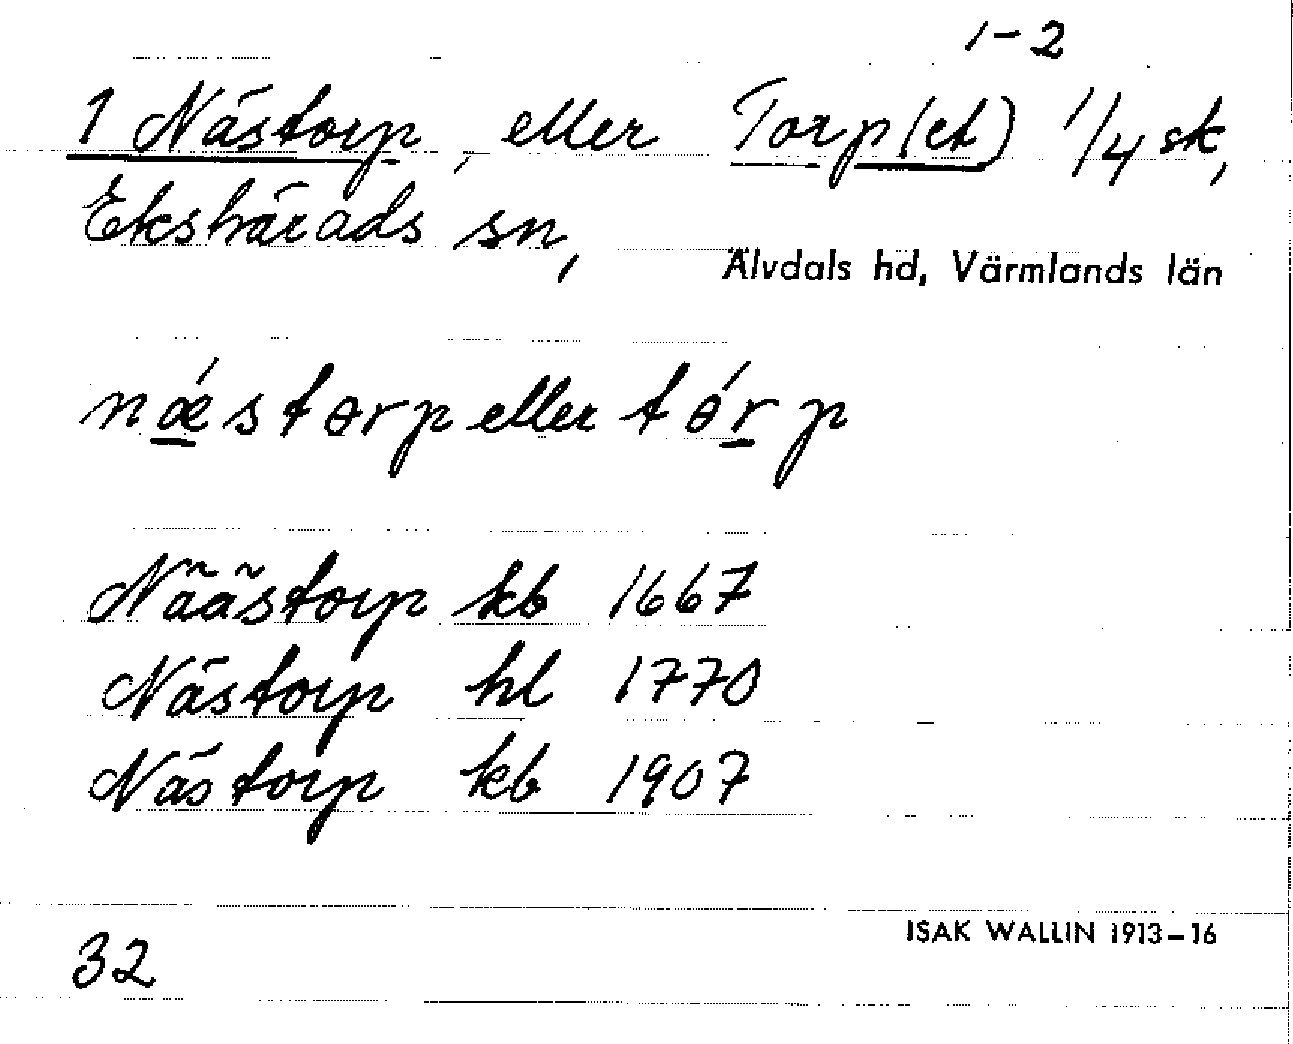 1-2
1 Nästorp, eller Torp(et) 1/4 sk,
Ekshärads sn,
Älvdals hd, Värmlands län
nǽstorp eller tórp
Näästorp kb 1667
Nästorp hl 1770
Nästorp kb 1907
ISAK WALLIN 1913-16
32